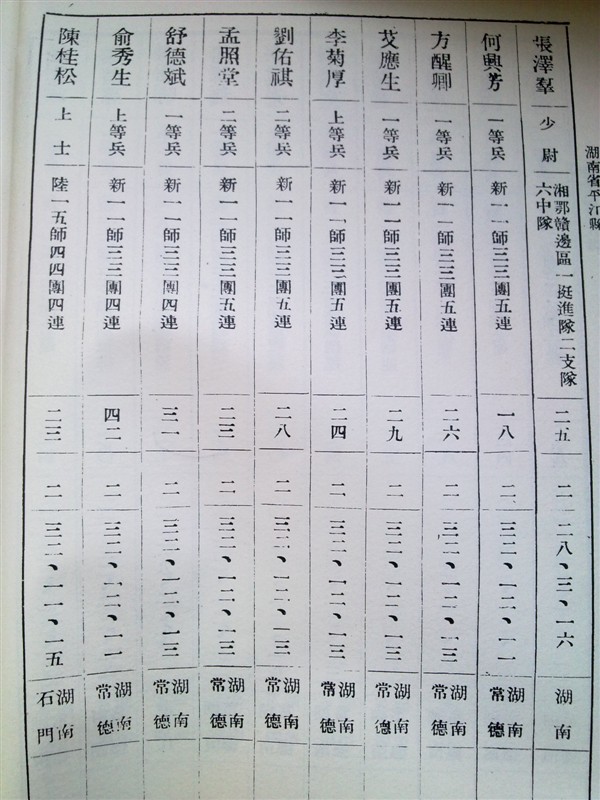 湖南省平江縣
張澤羣 少尉 湘鄂贛邊區一挺進隊二支隊六中隊 二五 二 二八、三、一六 湖南
何興芳 一等兵 新一一師三三團五連 一八 二 三二、一二、一一 湖南常德
方醒卿 一等兵 新一一師三三團五連 二六 二 三二、一二、一三 湖南常德
艾應生 一等兵 新一一師三三團五連 二九 二 三二、一二、一三 湖南常德
李菊厚 上等兵 新一一師三三團五連 二四 二 三二、一二、一三 湖南常德
劉佑祺 二等兵 新一一師三三團五連 二八 二 三二、一二、一三 湖南常德
孟照堂 二等兵 新一一師三三團五連 二三 二 三二、一二、一三 湖南常德
舒德斌 一等兵 新一一師三三團四連 三一 二 三二、一二、一三 湖南常德
俞秀生 上等兵 新一一師三三團四連 四二 二 三二、一二、一一 湖南常德
陳桂松 上士 陸一五師四四團四連 二三 二 三二、一一、一五 湖南石門